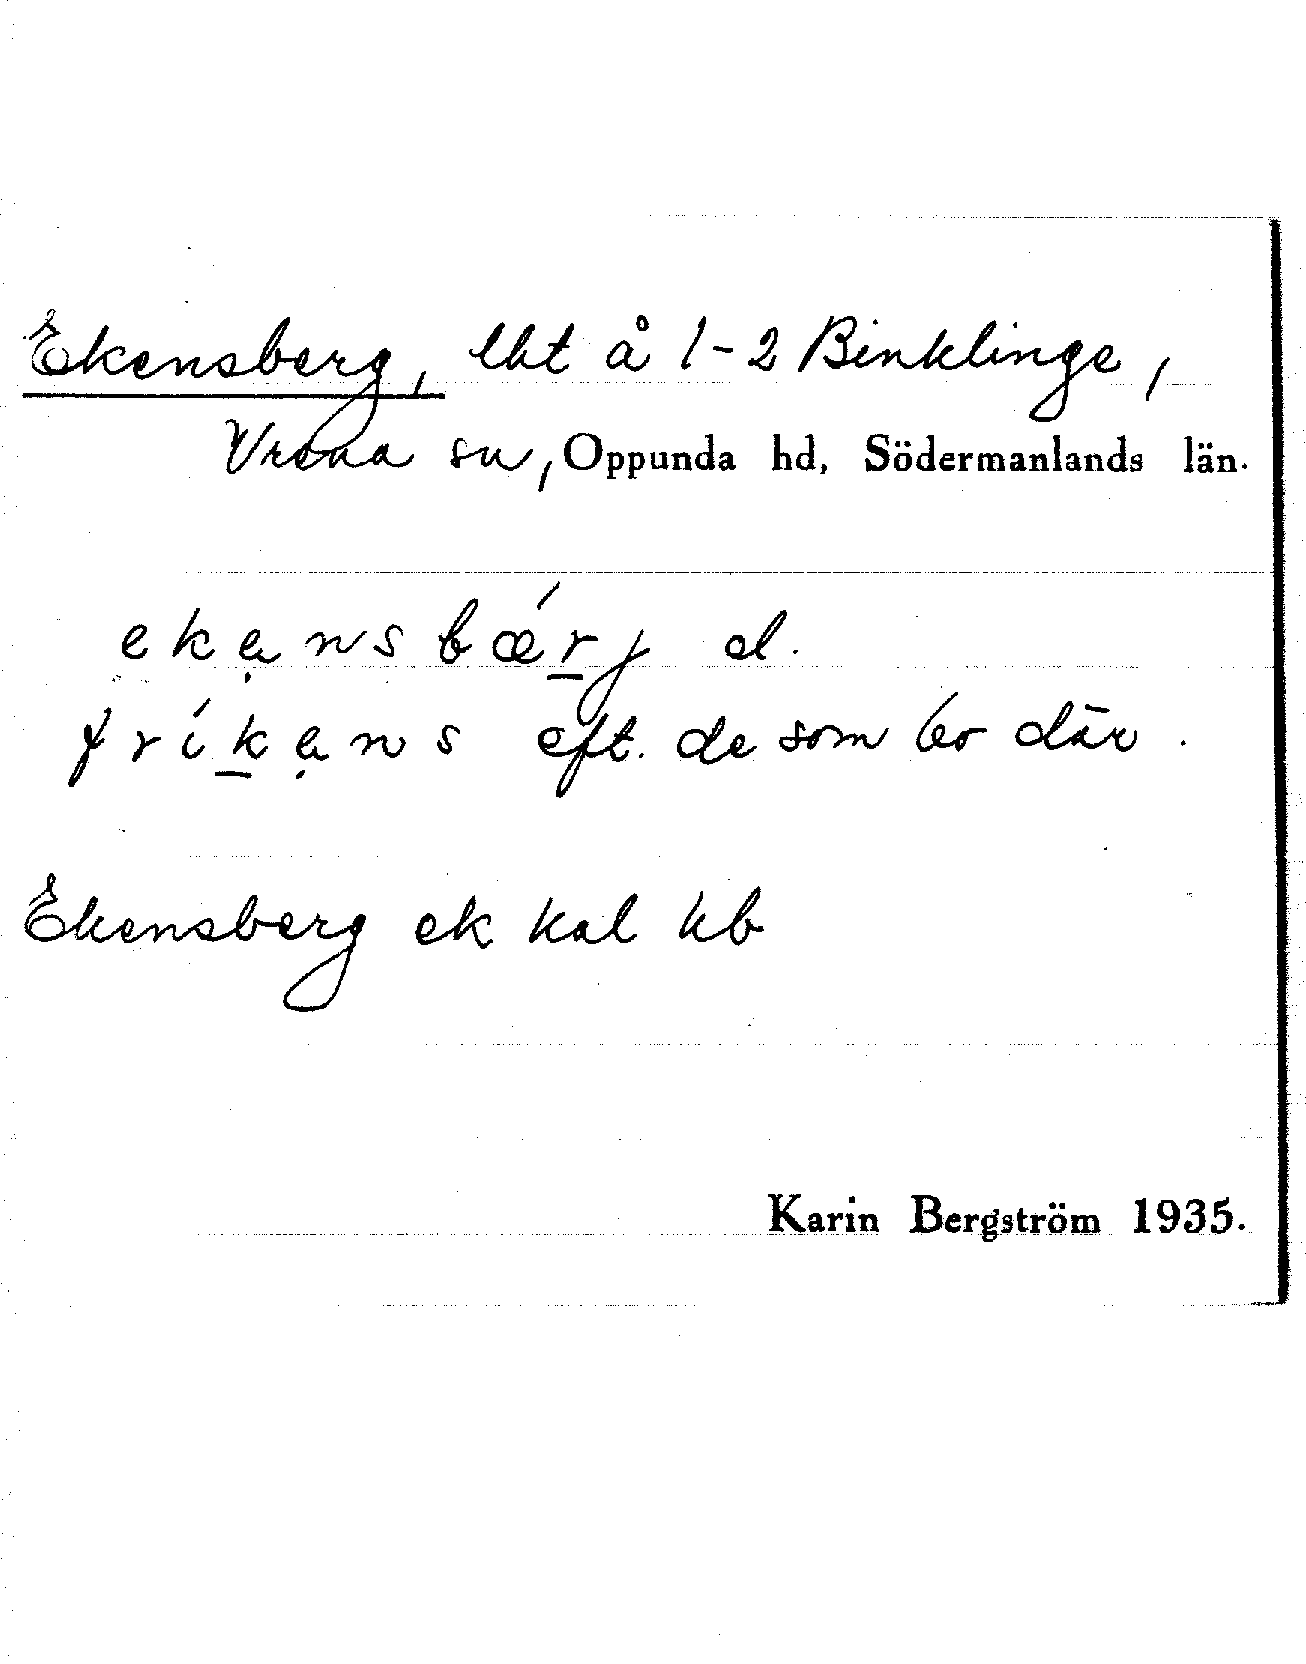 Ekensberg, lht å 1-2 Binklinge,
Vrena sn, Oppunda hd, Södermanlands län.
ekạnsbǽr̲j el.
frík̲ạns eft. de som bo där.
Ekensberg ek kal kb
Karin Bergström 1935.